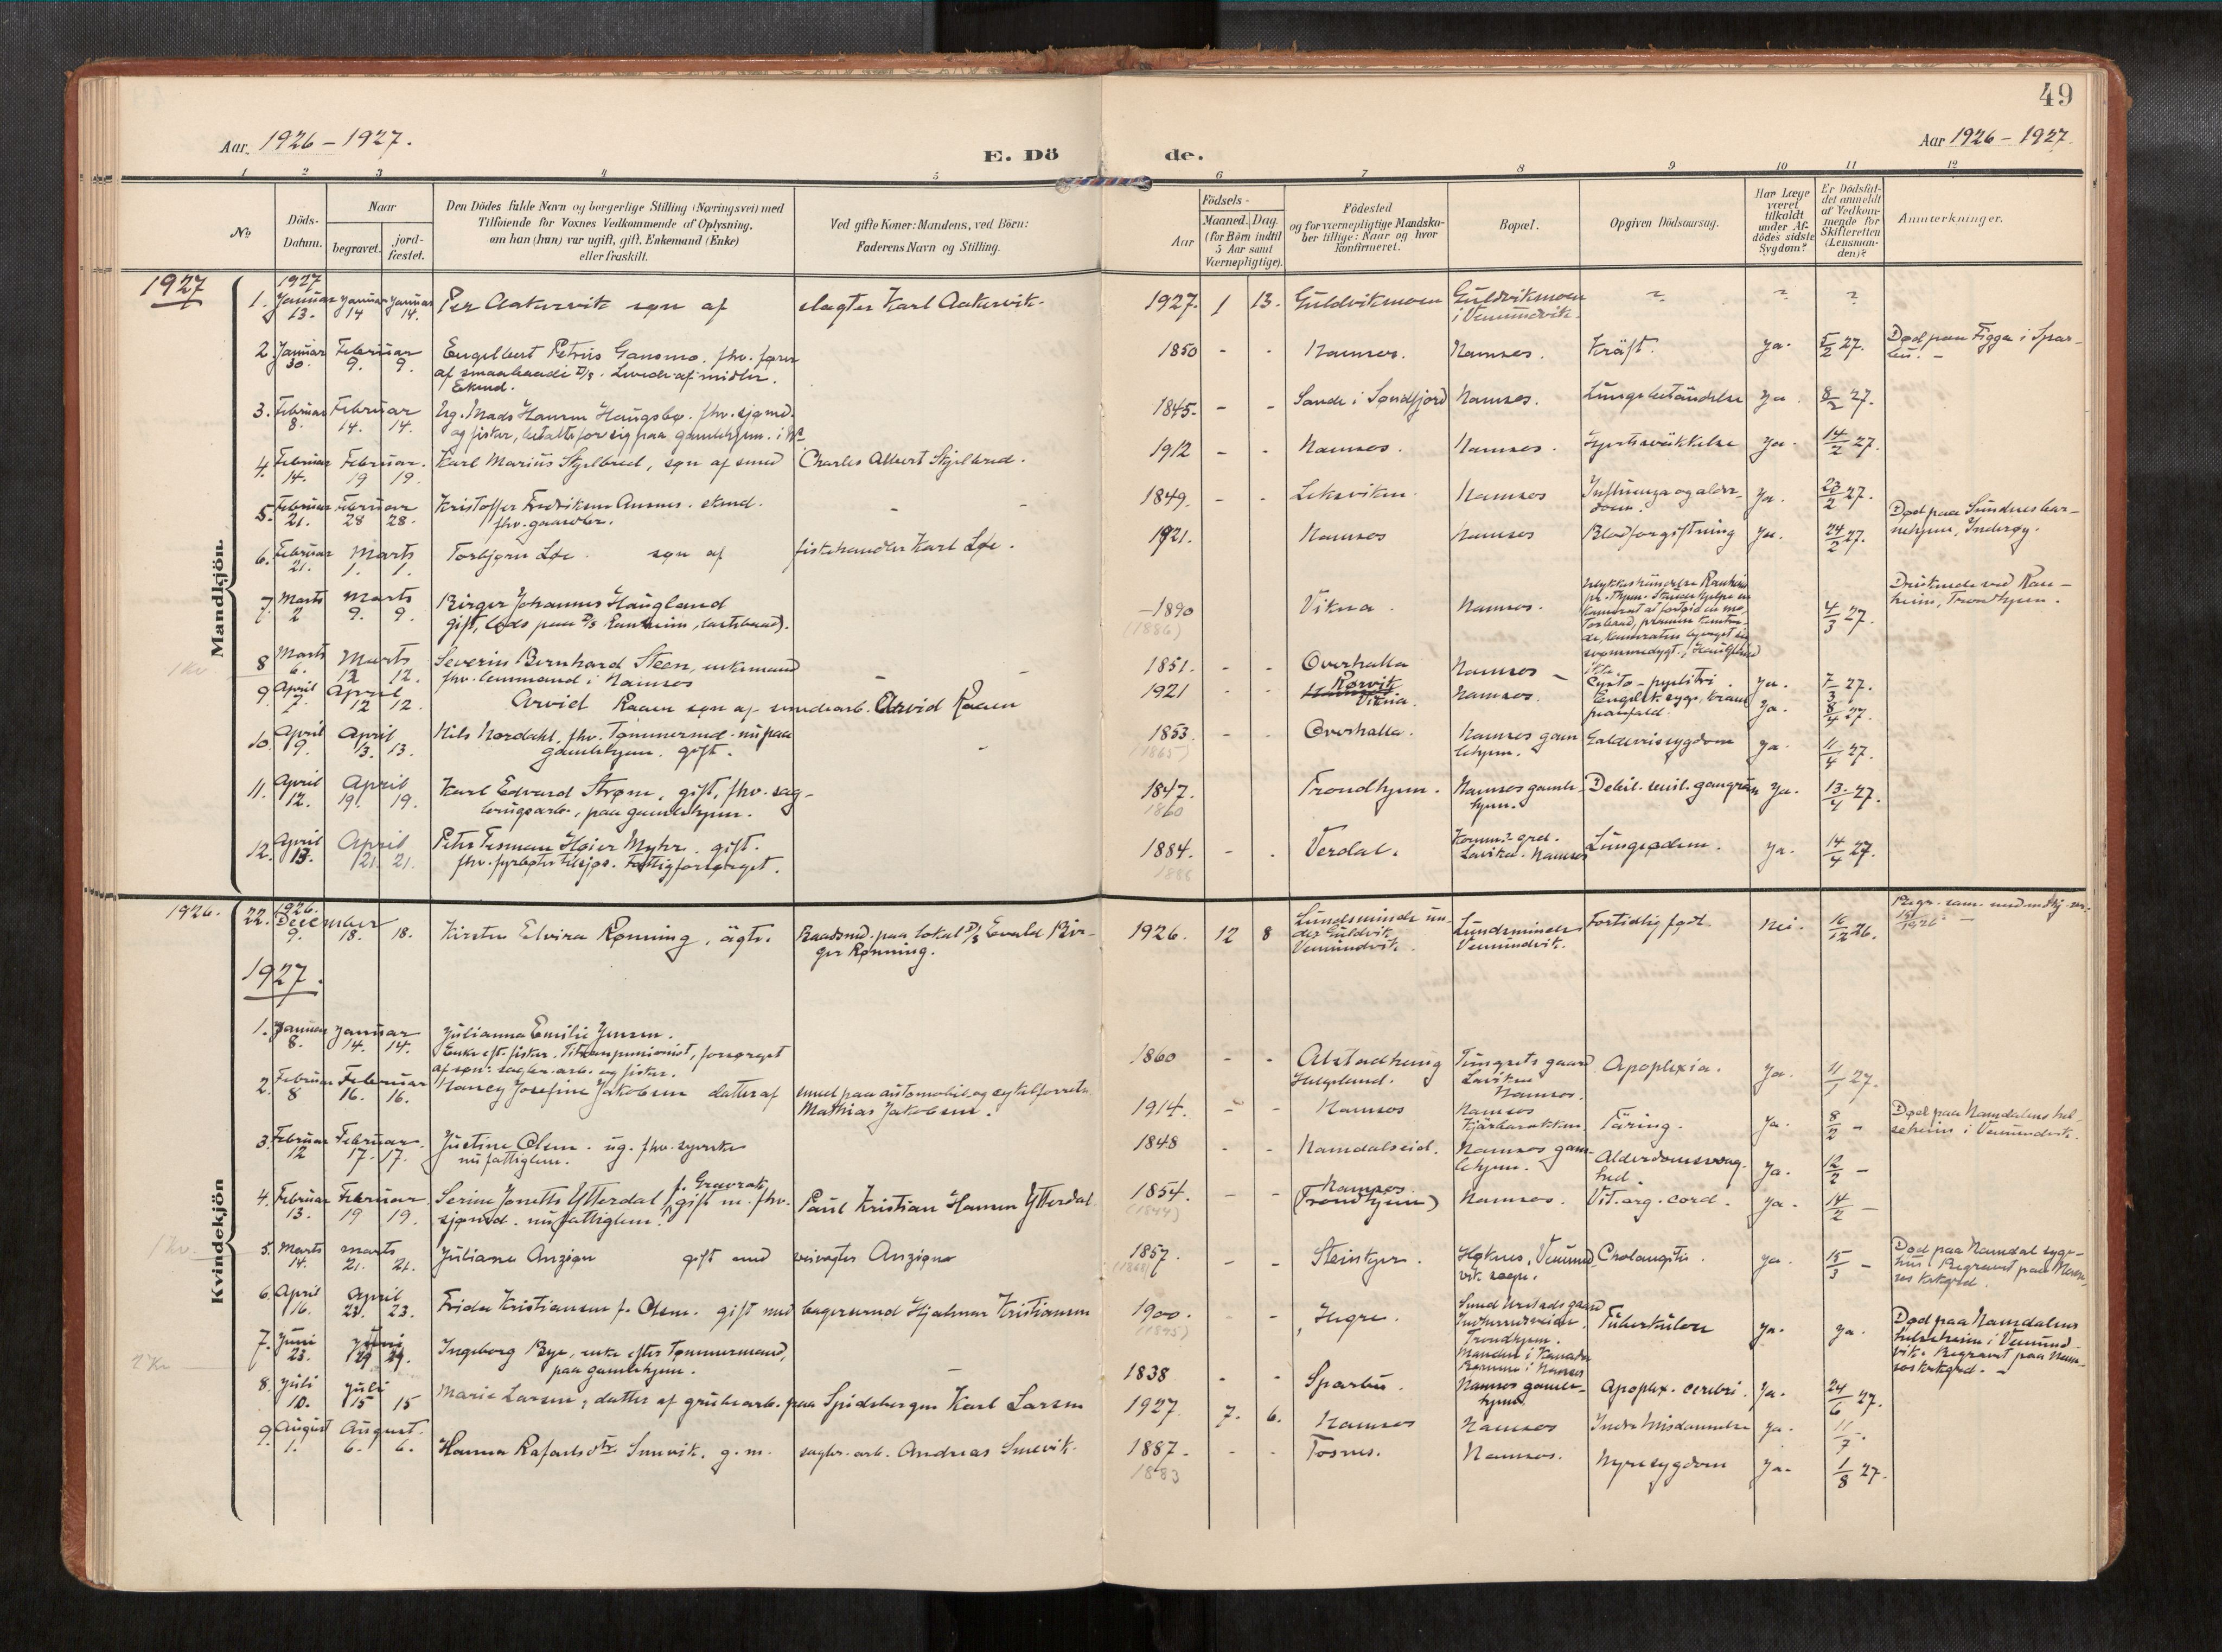 49
Aar 1926 – 1927.
E. Dö
de.
Aar 1926 – 1927.
1 2 3 4 5 6 7 8 9 10 11 12
No
Döds-
Datum.
Naar
begravet.
jord-
fæstet.
Den Dödes fulde Navn og borgerlige Stilling (Næringsvei) med
Tilföiende for Voxnes Vedkommende af Oplysning,
om han (hun) var ugift, gift, Enkemand (Enke)
eller fraskilt.
Ved gifte Koner: Mandens, ved Börn:
Faderens Navn og Stilling.
Födsels-
Aar
Maaned. Dag.
(for Börn indtil
5 Aar samt
Værnepligtige).
Födested
og for værnepligtige Mandska-
ber tillige: Naar og hvor
konfirmeret.
Bopæl.
Opgiven Dödsaarsag.
Har Læge
været
tilkaldt
under Af-
dödes sidste
Sygdom?
Er Dödsfal-
det anmeldt
af Vedkom-
mende for
Skifteretten
(Lensman-
den)?
Anmærkninger.
Mandkjön
1927
1927
1. Januar 13. Januar 14 Januar 14. Per Aakervik søn af slagter Karl Aakervik. 1927. 1 13. Guldvikmoen Guldvikmoen
i Vemundvik. ? ? ?
2. Januar 30. Februar 9. 9. Engelbert Petrus Gansmo. fhv. fører
af smaabaade D/S. Levede af midler.
Ekmd. 1850 - - Namsos. Namsos. Kräft. Ja. 5/2 27. Død paa Figga i Spar-
bu. –
3. Februar 8. Februar 14. 14. Ug. Mads Hansen Haugsbø. fhv. sjømd.
og fisker, betalte for sig paa gamlehjem. i Ns 1845- - - Sande i Søndfjord Namsos. Lungebetändelse Ja. 8/2 27.
4. Februar 14. Februar. 19 19. Karl Marius Skjelbred, søn af smed Charles Albert Skjelbred. 1912 - - Namsos. Namsos. Hjertesvækkelse Ja. 14/2 27.
5. Februar 21. Februar 28 28. Kristoffer Fredriksen Aunes. ekmd.
fhv. gaardbr. - - 1849. - - Leksviken. Namsos Influenza og alder-
dom. Ja. 23/2 27.
6. Februar 21. Marts 1. 1. Torbjørn Løe søn af fiskehandler Karl Løe. 1921. Namsos Namsos Blodforgiftning Ja. 24/2 27. Død paa Sundnes bar-
nehjem, Inderøy.
7. Marts 2 Marts 9. 9. Birger Johannes Haugland
gift, lods paa D/S Ranheim, lastebaad). –1890
(1886) Vikna. Namsos. 4/3 27. Druknede ved Ran-
heim, Trondhjem.
1 Kv
8 Marts 6. Marts 12 12. Severin Bernhard Steen, enkemand
fhv. lensmand i Namsos - - 1851. - - Overhalla Namsos – Cysto-pyelitis. Ja. 7/3 27.
9. April 7. April 12 12. Arvid Raaen søn af smedarb. Arvid Raaen 1921 - - Rørvik
Vikna. Namsos. Engelsk syge, Ja. 8/4 27.
10. April 9. April 13. 13. Nils Nordahl, fhv. Tømmermd. nu paa
gamlehjem. gift. - 1853
(1865) - - Overhalla. Namsos gam
lehjem. Galdeveissygdom Ja. 11/4 27.
11. April 12. April 19. 19. Karl Edvard Strøm, gift, fhv. sag-
brugsarb., paa gamlehjem. 1847.
1860 Trondhjem. Namsos gamle-
hjem. Debil. senil. gangræn Ja. 13/4 27.
12. April 13. April 21. 21. Peter Tesman Høier Myhr. gift.
fhv. fyrbøter tilsjøs. Fattigforsørget. 1884.
1886 - - Verdal. Komm. grd.
Laviken. Namsos Lungeødem. Ja. 14/4 27.
Kvindekjön
1926.
22. 1926.
December 9. 18. 18. Kirsten Elvira Rønning, ägte. Baadsmd. paa lokal D/S Evald Bir-
ger Rønning. 1926. 12 8 Lundsminde un-
der Guldvik
Vemundvik. Lundsminde
Vemundvik. Fortidlig født. Nei. 16/12 26.
1927.
1. Januar 8. Januar 14. 14. Julianna Emilie Jensen.
Enke eft. fisker. forsørget
af søn: sagbr. arb. og fisker. 1860 - - Alstadhaug
Helgeland. Tingrets gaard
Laviken
Namsos. Apoplexia. Ja. 11/1 27.
2. Februar 8 Februar 16. 16. Nancy Josefine Jakobsen datter af smed paa automobil- og cykelforretn.
Mathias Jakobsen. 1914. - - Namsos Namsos
Kjärbarakken Täring. Ja. 8/2 - Død paa Namdalens hel-
seheim i Vemundvik.
3. Februar 12 Februar 17. 17. Justine Olsen. ug. fhv. syerske
nu fattiglem. 1848 - - Namdalseid. Namsos gam-
lehjem. Alderdomssvag-
hed. Ja. 12/2 –
4. Februar 13. Februar. 19 19. Serine Jonette Ytterdal f. Gravrak, gift m. fhv.
sjømd. nu fattiglem. Paul Kristian Hansen Ytterdal 1854.
(1844) - - Namsos.
(Trondhjem) Namsos. Vit. org. cord. Ja. 14/2 –
1 Kv.
5. Marts 14. marts 21. 21. Juliane Anzion gift med veivogter Anzion 1857.
(1868) - - Steinkjer. Høknes, Vemund
vik sogn. Cholangitis. Ja. 15/3 – Død paa Namdal syge-
hus. Begravet paa Nam-
sos kirkgrd.
6. April 16. April 23. 23. Frida Kristiansen f. Olsen. gift med bagersvend Hjalmar Kristiansen 1900.
(1895) - - Hegre.
Trondhjem.
Manden i Kanada
Tuberkulose Ja. ja. Død paa Namdalens
helseheim i Vemund-
vik. Begravet paa Nam-
sos kirkgrd. –
7. Juni 23. Juni 29 29. Ingeborg Bye, enke efter Tømmermand,
paa gamlehjem. – 1838 - - Sparbu. Namsos gamle-
hjem. Apoplex. cerebri. Ja. 24/6 27.
2 Kv
8. Juli 10. Juli 15 15 Marie Larsen, datter af grubearb. paa Spidsbergen Karl Larsen 1927 7. 6. Namsos Namsos Indre misdannelse Ja. 11/7 -.
9. August 1. August. 6. 6. Hanna Rafaelsdtr. Smevik. g. m. sagbr. arb. Andreas Smevik. 1887.
1883 - - Fosnes. Namsos. Nyresygdom Ja. 1/8 27.